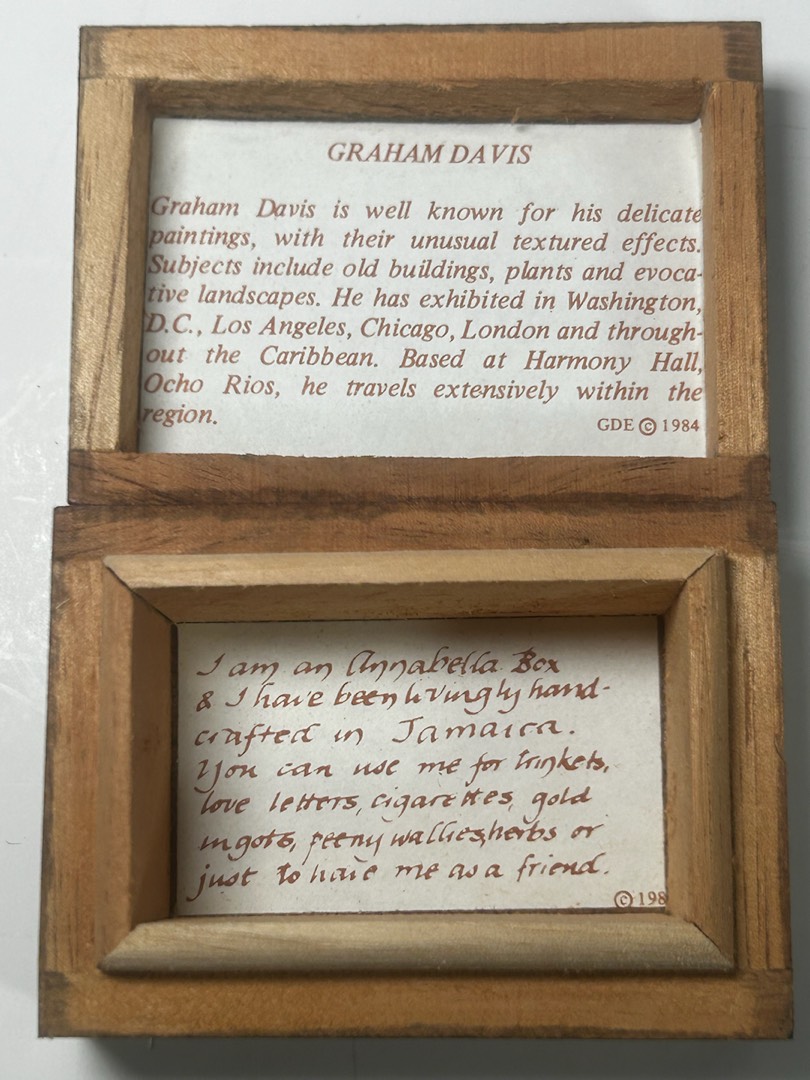 GRAHAM DAVIS
Graham Davis is well known for his delicate
paintings, with their unusual textured effects.
Subjects include old buildings, plants and evoca-
tive landscapes. He has exhibited in Washington,
D.C., Los Angeles, Chicago, London and through-
out the Caribbean. Based at Harmony Hall,
Ocho Rios, he travels extensively within the
region.
GDE © 1984
I am an Annabella Box
& I have been livingly hand-
crafted in Jamaica.
You can use me for trinkets,
love letters, cigarettes, gold
ingots, peeny wallies, herbs or
just to have me as a friend.
© 198